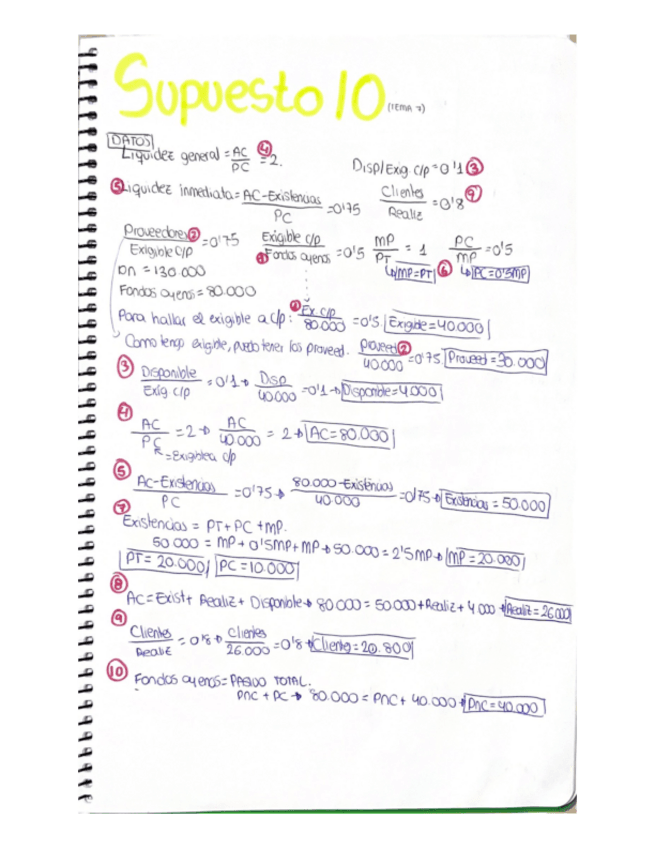 Supuesto 10 (TEMA 7)
DATOS
Liquidez general = AC/PC = 2. ④
Disp/Exig. c/p = 0'1 ③
⑤ Liquidez inmediata = AC-Existencias/PC = 0'75
Clientes/Realiz = 0'8 ⑨
Proveedores/Exigible c/p = 0'75 ②
Exigible c/p/Fondos ajenos = 0'5 ①
MP/PT = 1 ↳ MP=PT ⑥
PC/MP = 0'5 ↳ PC=0'5MP
Dn = 130.000
Fondos ajenos = 80.000
Para hallar el exigible a c/p: ① Ex c/p/80.000 = 0'5 Exigible = 40.000
Como tengo exigible, puedo tener los proveed. Proveed/40.000 = 0'75 ② Proveed = 30.000
③ Disponible/Exig c/p = 0'1 → Disp/40.000 = 0'1 → Disponible = 4.000
④ AC/PC = 2 → AC/40.000 = 2 → AC = 80.000
= Exigible a c/p
⑤ AC-Existencias/PC = 0'75 → 80.000-Existencias/40.000 = 0'75 → Existencias = 50.000
⑦ Existencias = PT + PC + MP.
50.000 = MP + 0'5MP + MP → 50.000 = 2'5MP → MP = 20.000
PT = 20.000 PC = 10.000
⑧ AC = Exist + Realiz + Disponible → 80.000 = 50.000 + Realiz + 4.000 → Realiz = 26.000
⑨ Clientes/Realiz = 0'8 → Clientes/26.000 = 0'8 → Clientes = 20.800
⑩ Fondos ajenos = PASIVO TOTAL.
PNC + PC → 80.000 = PNC + 40.000 → PNC = 40.000